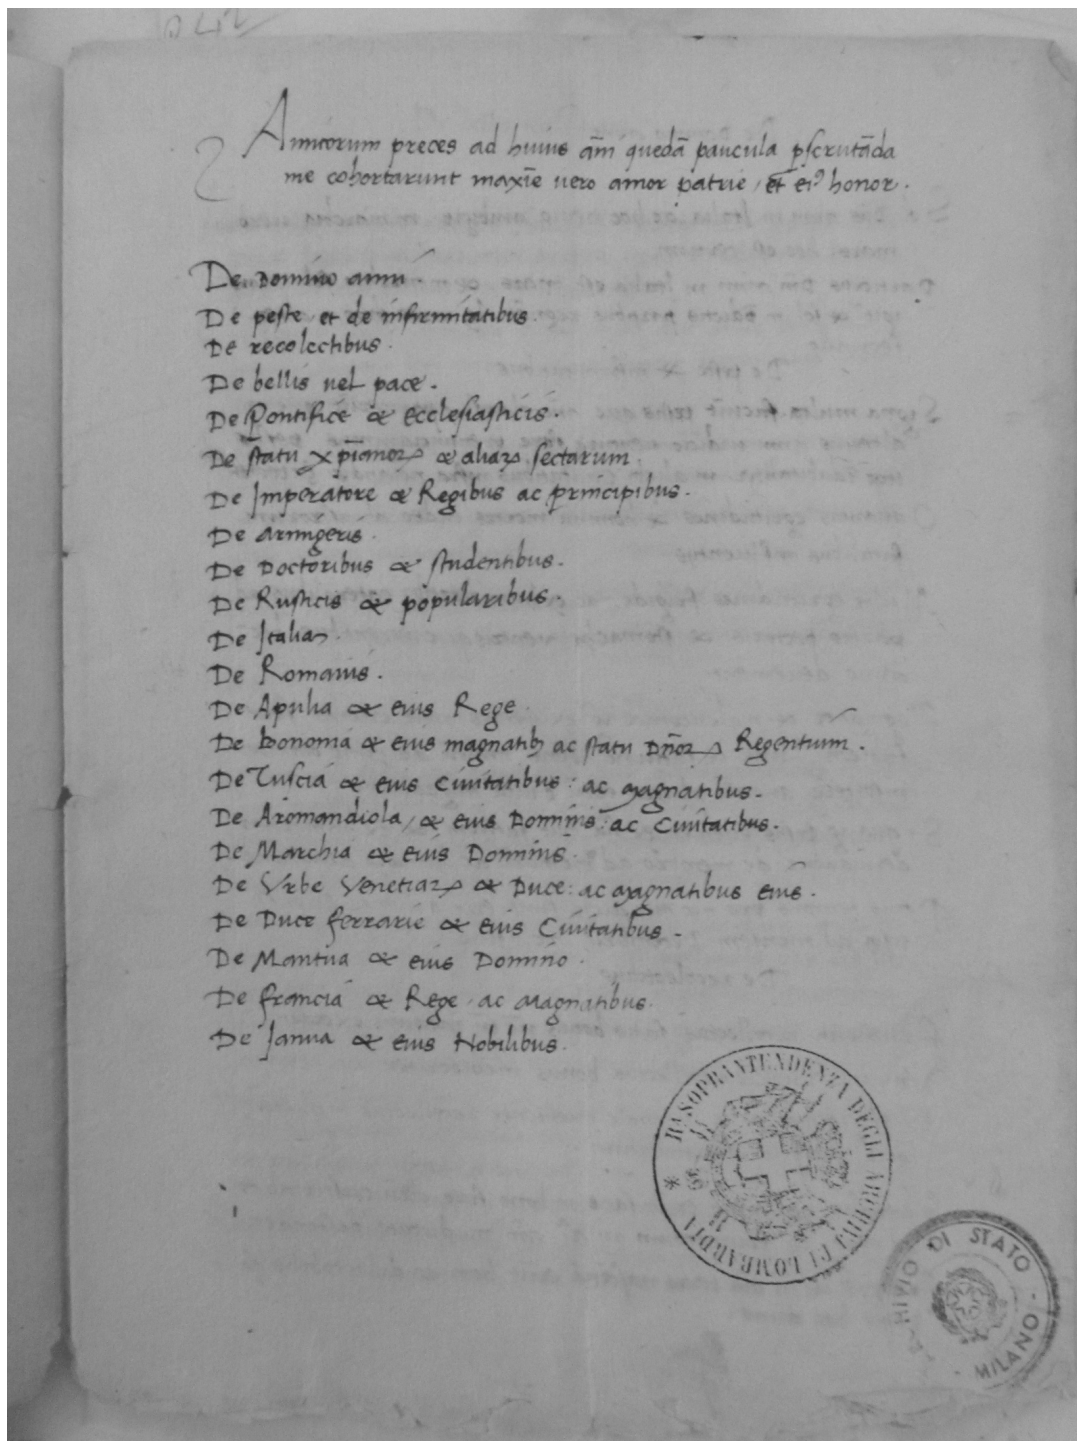 Amicorum preces ad huius añi quedā paucula pscrutāda
me cohortarunt maxīe uero amor patrie, et ei⁹ honor.
De Domino anni
De peste et de infirmitatibus.
De recolectibus.
De bellis uel pace.
De Pontifice & Ecclesiasticis.
De statu xpīanoꝝ & aliaꝝ sectarum.
De Imperatore & Regibus ac principibus.
De armigeris.
De Doctoribus & studentibus.
De Rusticis & popularibus.
De Italia.
De Romanis.
De Apulia & eius Rege.
De bononia & eius magnatibꝫ ac statu Dñoꝝ Regentium.
De Tuscia & eius Ciuitatibus: ac Magnatibus.
De Aromandiola, & eius Dominis: ac Ciuitatibus.
De Marchia & eius Dominis.
De Vrbe Venetiaꝝ & Duce: ac Magnatibus eius.
De Duce ferrarie & eius Ciuitatibus.
De Mantua & eius Domino.
De francia & Rege, ac Magnatibus.
De Janua & eius Nobilibus.
Rᴬ SOPRANTENDENZA DEGLI ARCHIVI DI LOMBARDIA
ARCHIVIO DI STATO
- MILANO -